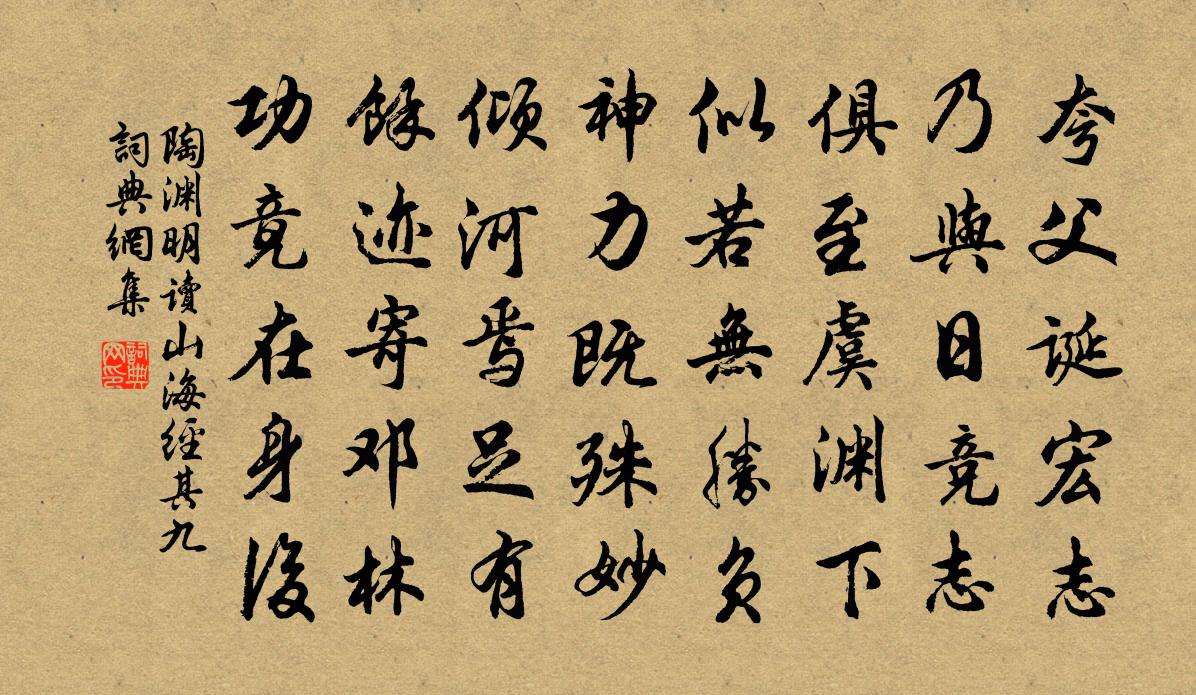 夸父诞宏志
乃與日竞志
俱至虞渊下
似若無勝负
神力既殊妙
倾河焉足有
餘迹寄邓林
功竟在身後
陶渊明讀山海經其九
詞典網集
詞典网印